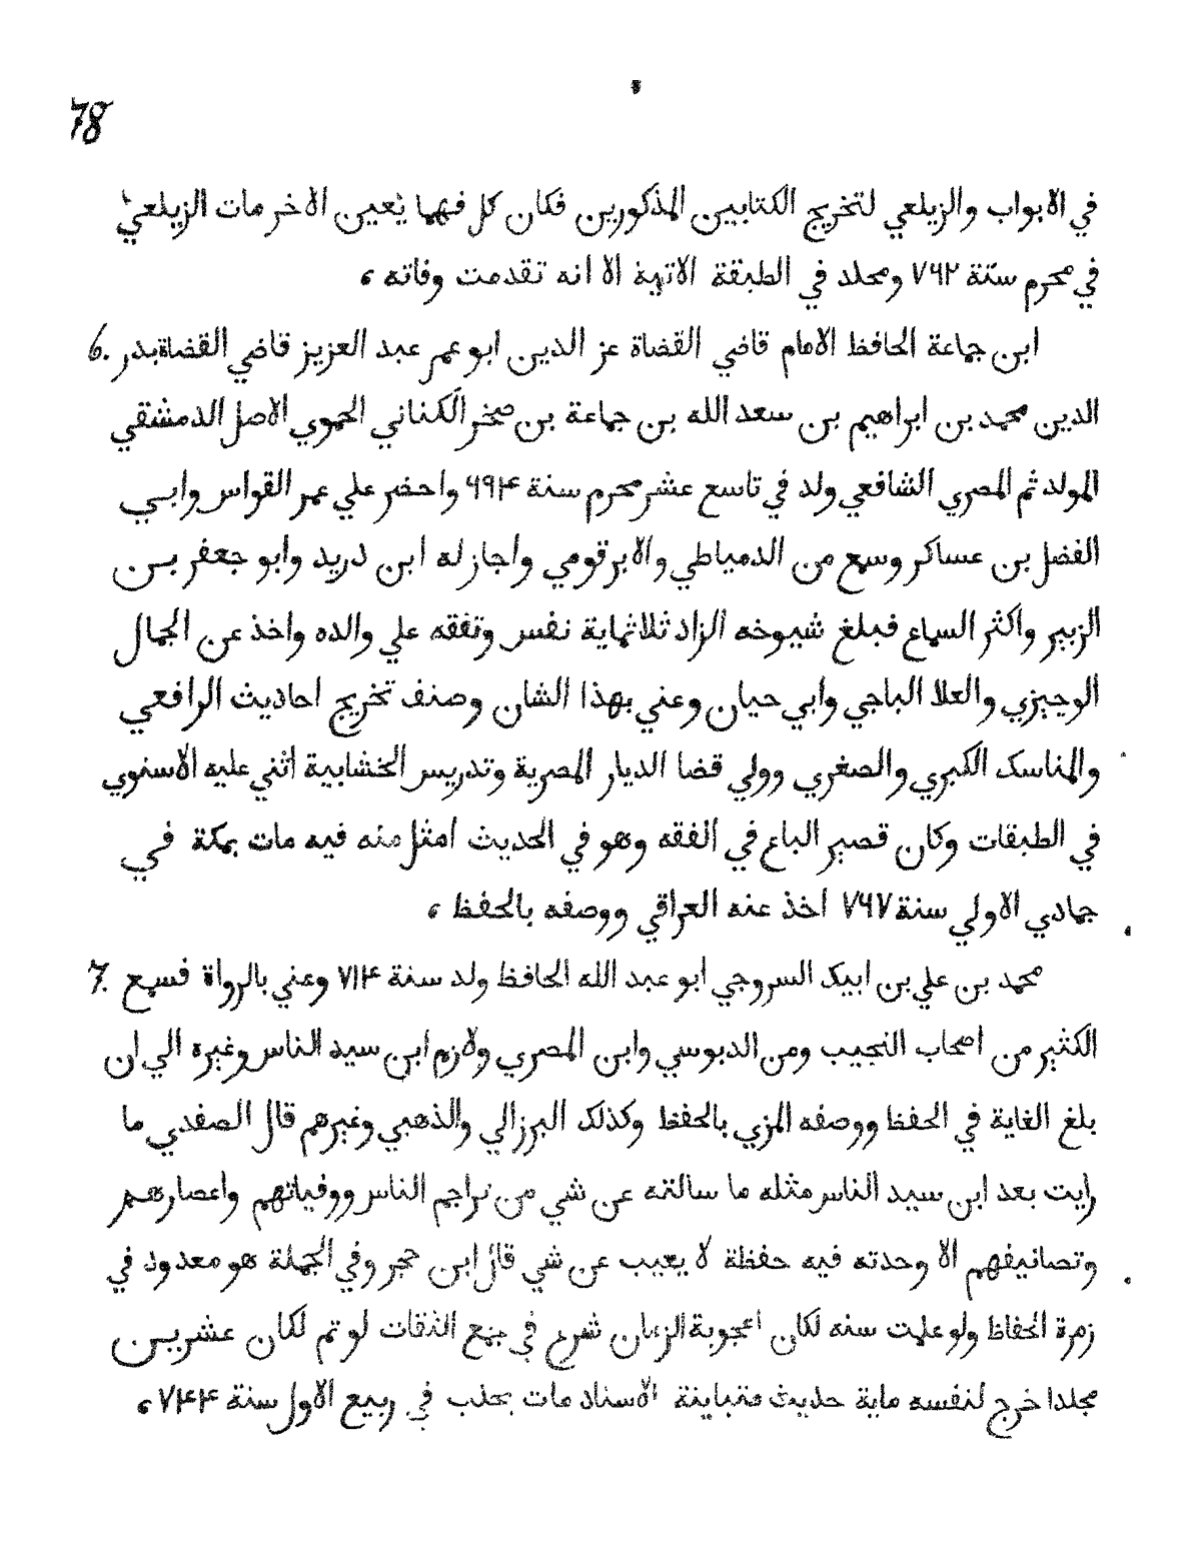 78
في الابواب والزيلعي لتخريج الكتابين المذكورين فكان كل فهما يعين الاخر مات الزيلعي
في محرم سنة ٧٦٢ ومحلد في الطبقة الاتية الا انه تقدمت وفاته ،
6. ابن جماعة الحافظ الامام قاضي القضاة عز الدين ابو عمر عبد العزيز قاضي القضاة بدر
الدين محمد بن ابراهيم بن سعد الله بن جماعة بن صخر الكناني الحموي الاصل الدمشقي
المولد ثم المصري الشافعي ولد في تاسع عشر محرم سنة ٦٩۴ واحضر علي عمر القواس وابي
الفضل بن عساكر وسمع من الدمياطي والابرقومي واجاز له ابن دريد وابو جعفر بن
الزبير واكثر السماع فبلغ شيوخه الزاد ثلاثماية نفس وتفقه علي والده واخذ عن الجمال
الوجيزي والعلا الباجي وابي حيان وعني بهذا الشان وصنف تخريج احاديث الرافعي
والمناسك الكبري والصغري وولي قضا الديار المصرية وتدريس الخشابية اثني عليه الاسنوي
في الطبقات وكان قصير الباع في الفقه وهو في الحديث امثل منه فيه مات بمكة في
جمادي الاولي سنة ٧٦٧ اخذ عنه العراقي ووصفه بالحفظ ،
7. محمد بن علي بن ايبك السروجي ابو عبد الله الحافظ ولد سنة ٧١۴ وعني بالرواة فسمع
الكثير من اصحاب النجيب ومن الدبوسي وابن المصري ولازم ابن سيد الناس وغيره الي ان
بلغ الغاية في الحفظ ووصفه المزي بالحفظ وكذلك البرزالي والذهبي وغيرهم قال الصفدي ما
رايت بعد ابن سيد الناس مثله ما سالته عن شي من تراجم الناس ووفياتهم واعصارهم
وتصانيفهم الا وحدته فيه حفظة لا يعيب عن شي قال ابن حجر وفي الجملة هو معدود في
زمرة الحفاظ ولو علت سنه لكان اعجوبة الزمان شرع في جمع الثقات لو تم لكان عشرين
مجلدا خرج لنفسه ماية حديث متباينة الاسناد مات بحلب في ربيع الاول سنة ٧۴۴ ،